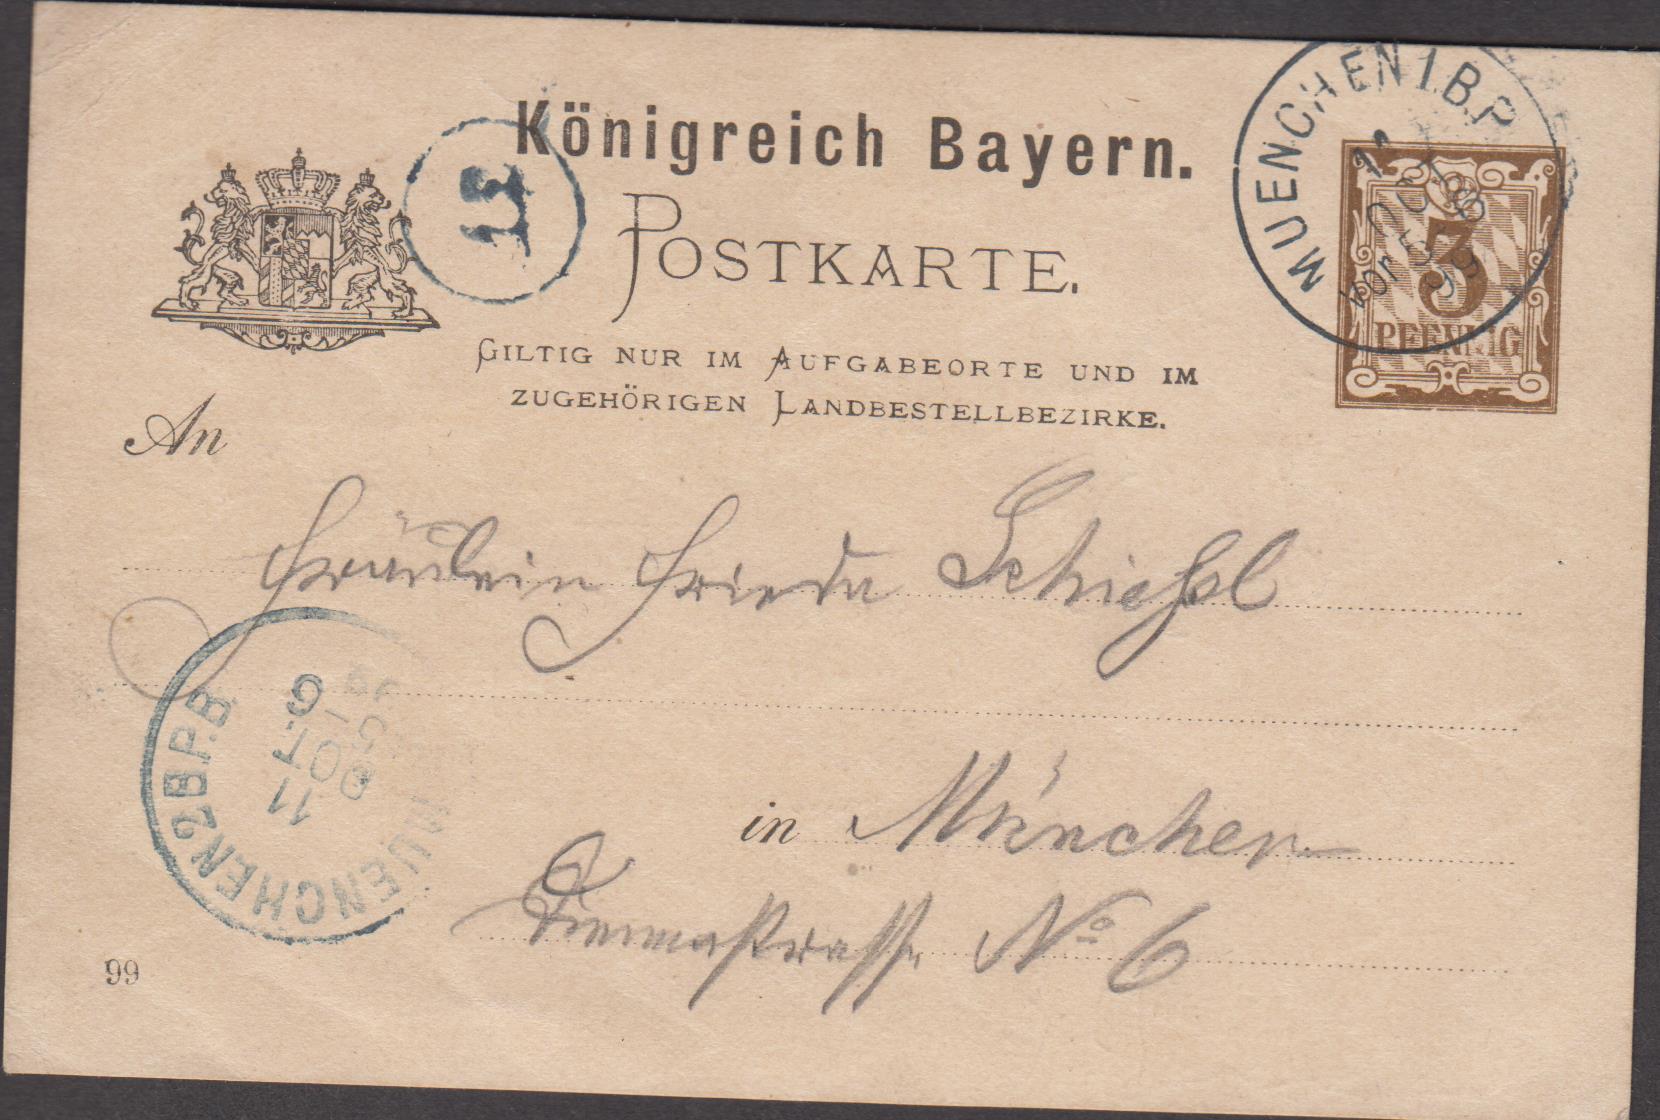 Königreich Bayern.
POSTKARTE.
GILTIG NUR IM AUFGABEORTE UND IM
ZUGEHÖRIGEN LANDBESTELLBEZIRKE.
MUENCHEN 1.B.P
11 OCT
Vor 5-6
99
3
PFENNIG
37
An
Fräulein Frieda Schießl
in München
strasse No 6
MUENCHEN 2 B.P.B
11
OCT.
6
99